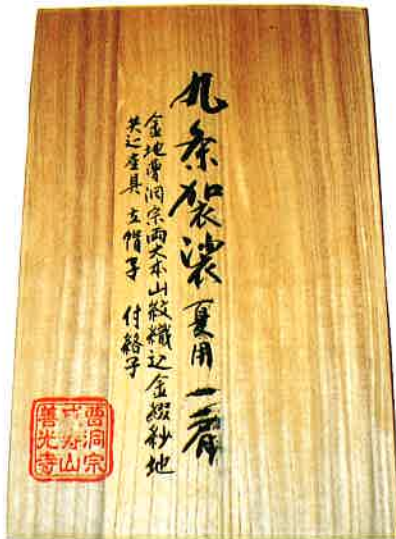 九条袈裟 夏用 一肩
金地曹洞宗両大本山紋織込金綴紗地
共辺座具 立帽子 付絡子
曹洞宗
寿山
善光寺